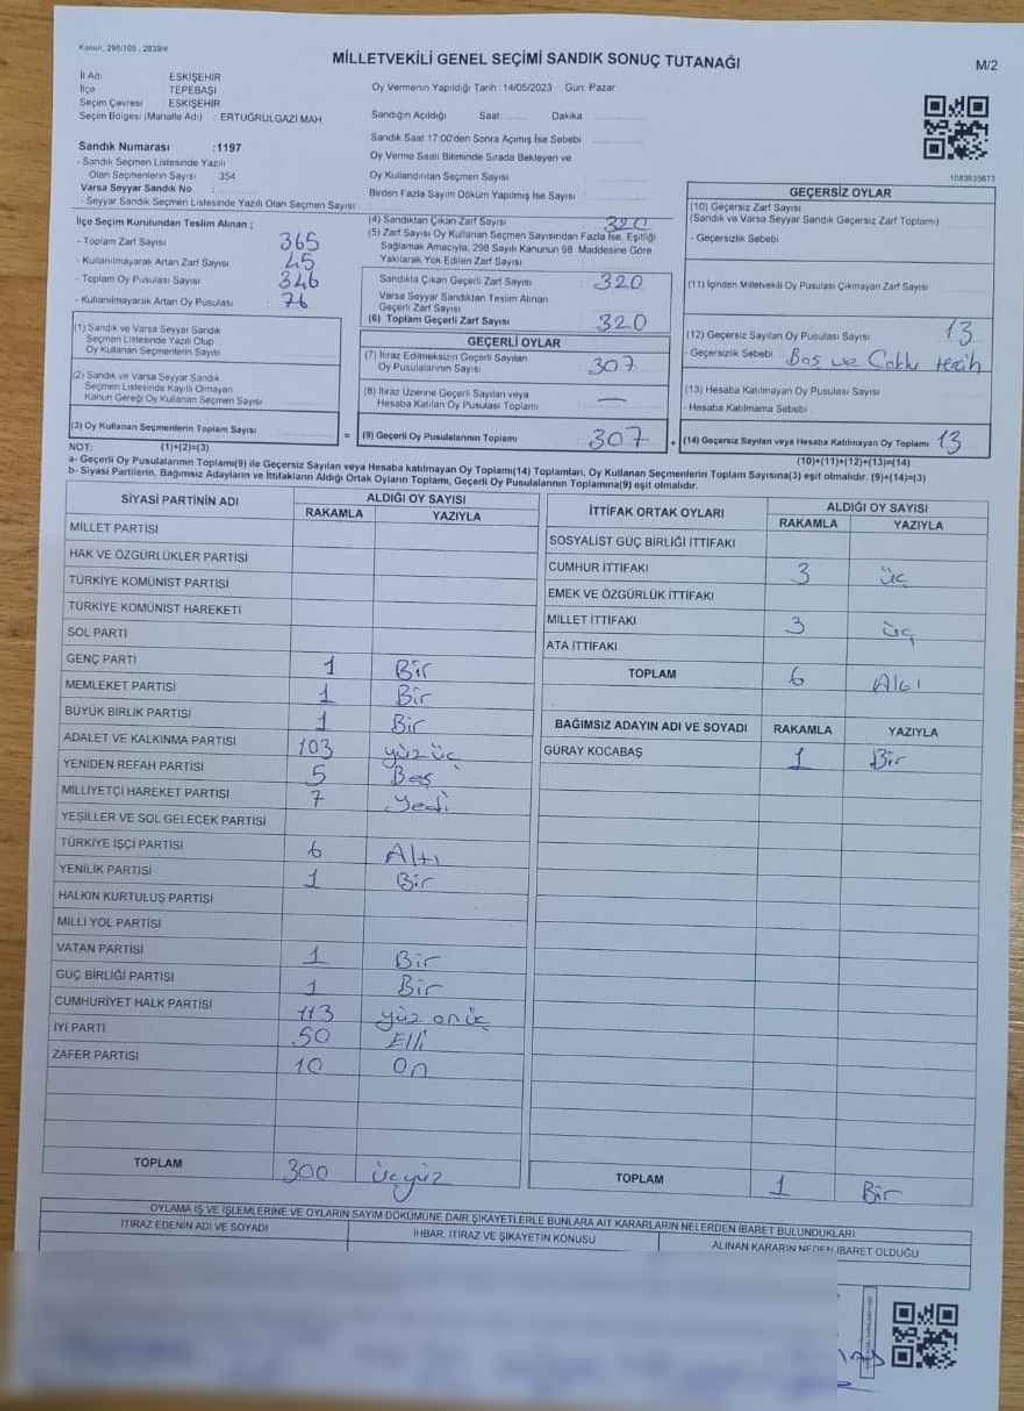 Kanun: 298/105 ; 2839/e
MİLLETVEKİLİ GENEL SEÇİMİ SANDIK SONUÇ TUTANAĞI
M/2
İl Adı ESKİŞEHİR
İlçe TEPEBAŞI
Seçim Çevresi ESKİŞEHİR
Seçim Bölgesi (Mahalle Adı) : ERTUĞRULGAZİ MAH
Oy Vermenin Yapıldığı Tarih : 14/05/2023 Gün: Pazar
Sandığın Açıldığı Saat Dakika
Sandık Saat 17:00'den Sonra Açılmış İse Sebebi
Oy Verme Saati Bitiminde Sırada Bekleyen ve
Oy Kullandırılan Seçmen Sayısı
Birden Fazla Sayım Döküm Yapılmış İse Sayısı
Sandık Numarası :1197
- Sandık Seçmen Listesinde Yazılı
Olan Seçmenlerin Sayısı 354
Varsa Seyyar Sandık No
- Seyyar Sandık Seçmen Listesinde Yazılı Olan Seçmen Sayısı
İlçe Seçim Kurulundan Teslim Alınan ;
- Toplam Zarf Sayısı 365
- Kullanılmayarak Artan Zarf Sayısı 45
- Toplam Oy Pusulası Sayısı 346
- Kullanılmayarak Artan Oy Pusulası 76
(1) Sandık ve Varsa Seyyar Sandık
Seçmen Listesinde Yazılı Olup
Oy Kullanan Seçmenlerin Sayısı
(2) Sandık ve Varsa Seyyar Sandık
Seçmen Listesinde Kayıtlı Olmayan
Kanun Gereği Oy Kullanan Seçmen Sayısı
(3) Oy Kullanan Seçmenlerin Toplam Sayısı
=
(4) Sandıktan Çıkan Zarf Sayısı 320
(5) Zarf Sayısı Oy Kullanan Seçmen Sayısından Fazla İse, Eşitliği
Sağlamak Amacıyla, 298 Sayılı Kanunun 98. Maddesine Göre
Yakılarak Yok Edilen Zarf Sayısı
Sandıkta Çıkan Geçerli Zarf Sayısı 320
Varsa Seyyar Sandıktan Teslim Alınan
Geçerli Zarf Sayısı
(6) Toplam Geçerli Zarf Sayısı 320
GEÇERLİ OYLAR
(7) İtiraz Edilmeksizin Geçerli Sayılan
Oy Pusulalarının Sayısı 307
(8) İtiraz Üzerine Geçerli Sayılan veya
Hesaba Katılan Oy Pusulası Toplamı —
(9) Geçerli Oy Pusulalarının Toplamı 307
+
GEÇERSİZ OYLAR
(10) Geçersiz Zarf Sayısı
(Sandık ve Varsa Seyyar Sandık Geçersiz Zarf Toplamı)
- Geçersizlik Sebebi
(11) İçinden Milletvekili Oy Pusulası Çıkmayan Zarf Sayısı
(12) Geçersiz Sayılan Oy Pusulası Sayısı 13
- Geçersizlik Sebebi Boş ve Çoklu tercih
(13) Hesaba Katılmayan Oy Pusulası Sayısı
- Hesaba Katılmama Sebebi
(14) Geçersiz Sayılan veya Hesaba Katılmayan Oy Toplamı 13
NOT: (1)+(2)=(3)
(10)+(11)+(12)+(13)=(14)
a- Geçerli Oy Pusulalarının Toplamı(9) ile Geçersiz Sayılan veya Hesaba katılmayan Oy Toplamı(14) Toplamları, Oy Kullanan Seçmenlerin Toplam Sayısına(3) eşit olmalıdır. (9)+(14)=(3)
b- Siyasi Partilerin, Bağımsız Adayların ve İttifakların Aldığı Ortak Oyların Toplamı, Geçerli Oy Pusulalarının Toplamına(9) eşit olmalıdır.
SİYASİ PARTİNİN ADI ALDIĞI OY SAYISI
RAKAMLA YAZIYLA
MİLLET PARTİSİ
HAK VE ÖZGÜRLÜKLER PARTİSİ
TÜRKİYE KOMÜNİST PARTİSİ
TÜRKİYE KOMÜNİST HAREKETİ
SOL PARTİ
GENÇ PARTİ 1 Bir
MEMLEKET PARTİSİ 1 Bir
BÜYÜK BİRLİK PARTİSİ 1 Bir
ADALET VE KALKINMA PARTİSİ 103 yüz üç
YENİDEN REFAH PARTİSİ 5 Beş
MİLLİYETÇİ HAREKET PARTİSİ 7 Yedi
YEŞİLLER VE SOL GELECEK PARTİSİ
TÜRKİYE İŞÇİ PARTİSİ 6 Altı
YENİLİK PARTİSİ 1 Bir
HALKIN KURTULUŞ PARTİSİ
MİLLİ YOL PARTİSİ
VATAN PARTİSİ 1 Bir
GÜÇ BİRLİĞİ PARTİSİ 1 Bir
CUMHURİYET HALK PARTİSİ 113 yüz on üç
İYİ PARTİ 50 Elli
ZAFER PARTİSİ 10 On
TOPLAM 300 üçyüz
İTTİFAK ORTAK OYLARI ALDIĞI OY SAYISI
RAKAMLA YAZIYLA
SOSYALİST GÜÇ BİRLİĞİ İTTİFAKI
CUMHUR İTTİFAKI 3 üç
EMEK VE ÖZGÜRLÜK İTTİFAKI
MİLLET İTTİFAKI 3 üç
ATA İTTİFAKI
TOPLAM 6 Altı
BAĞIMSIZ ADAYIN ADI VE SOYADI RAKAMLA YAZIYLA
GÜRAY KOCABAŞ 1 Bir
TOPLAM 1 Bir
OYLAMA İŞ VE İŞLEMLERİNE VE OYLARIN SAYIM DÖKÜMÜNE DAİR ŞİKAYETLERLE BUNLARA AİT KARARLARIN NELERDEN İBARET BULUNDUKLARI
İTİRAZ EDENİN ADI VE SOYADI
İHBAR, İTİRAZ VE ŞİKAYETİN KONUSU
ALINAN KARARIN NEDEN İBARET OLDUĞU